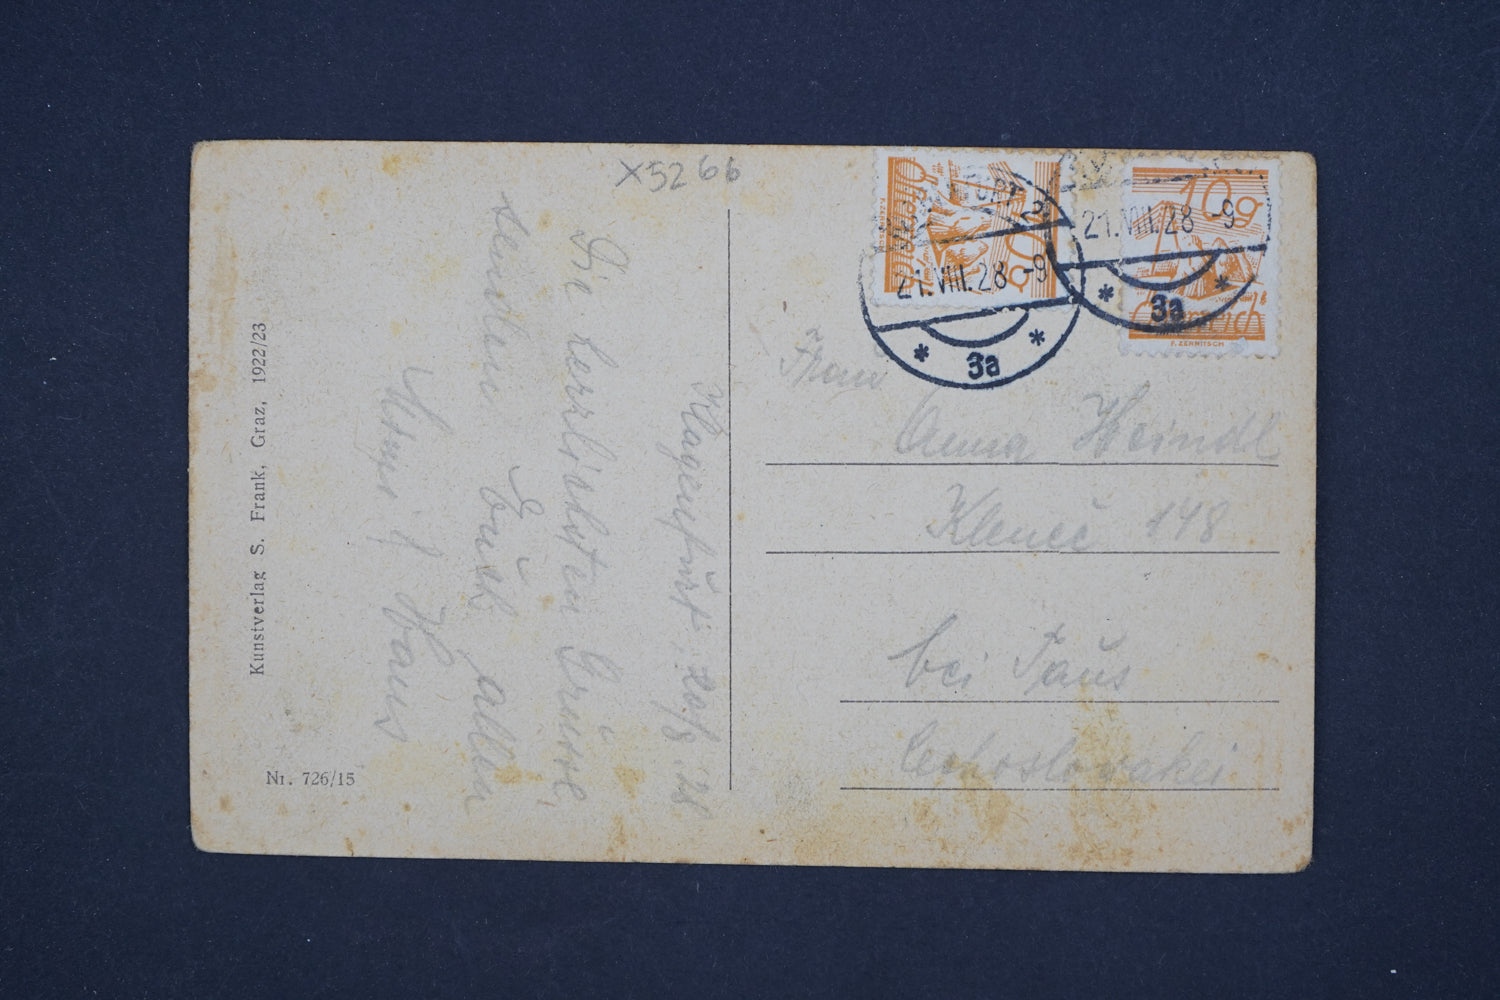 x5266
Klagenfurt, 20/8. 28
Die herzlichsten Grüsse,
senden Euch allen
Hans
Kunstverlag S. Frank, Graz, 1922/23
Nr. 726/15
FURT 2
21.VIII.28 -9
* 3a *
Österreich
21.VIII.28 -9
* 3a *
10g
Österreich
F. ZERRITSCH
Frau
Anna Heindl
Kleneč 148
bei Taus
Čechoslovakei